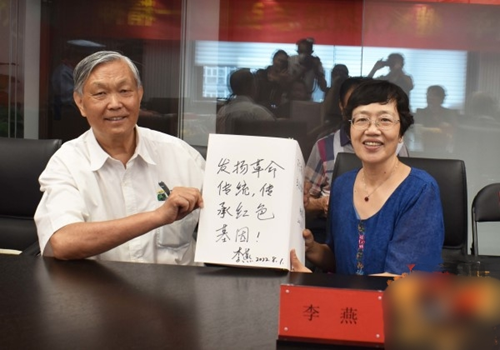 发扬革命
传统，传
承红色
基因！
李燕 2022.8.1.
李 燕